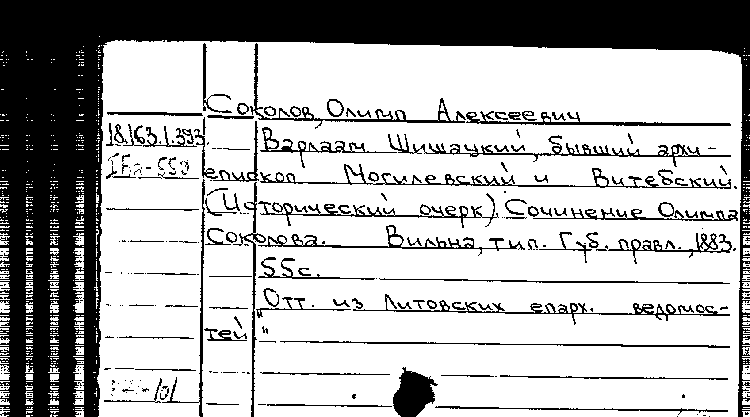 Соколов, Олимп Алексеевич
18.163.1.393
Варлаам Шишацкий, бывший архи-
епископ Могилевский и Витебский.
(Исторический очерк). Сочинение Олимпа
Соколова. Вильна, тип. Губ. правл., 1883.
55с.
Отт. из "Литовских епарх. ведомос-
тей"